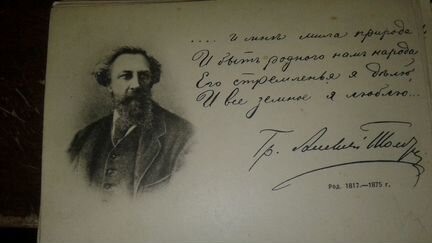 .... и мнѣ мила природа
И бытъ родного намъ народа
Его стремленья я дѣлю
И все земное я люблю...
Гр. Алексѣй Толстой
Род. 1817.—1875 г.